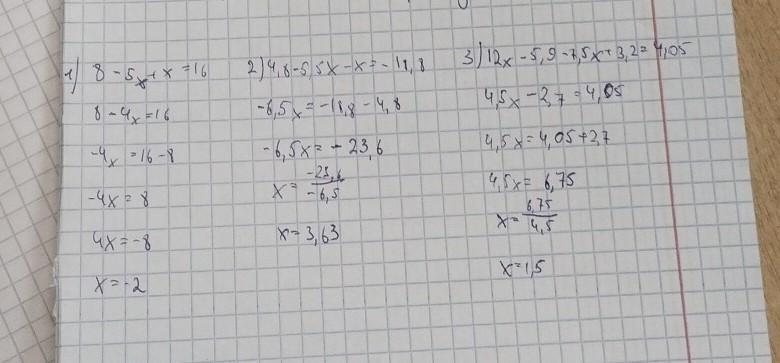 1) 8 - 5x + x = 16
8 - 4x = 16
-4x = 16 - 8
-4x = 8
4x = -8
x = -2
2) 4,8 - 5,5x - x = -18,8
-6,5x = -18,8 - 4,8
-6,5x = -23,6
x = -23,6 / -6,5
x = 3,63
3) 12x - 5,9 - 7,5x + 3,2 = 4,05
4,5x - 2,7 = 4,05
4,5x = 4,05 + 2,7
4,5x = 6,75
x = 6,75 / 4,5
x = 1,5